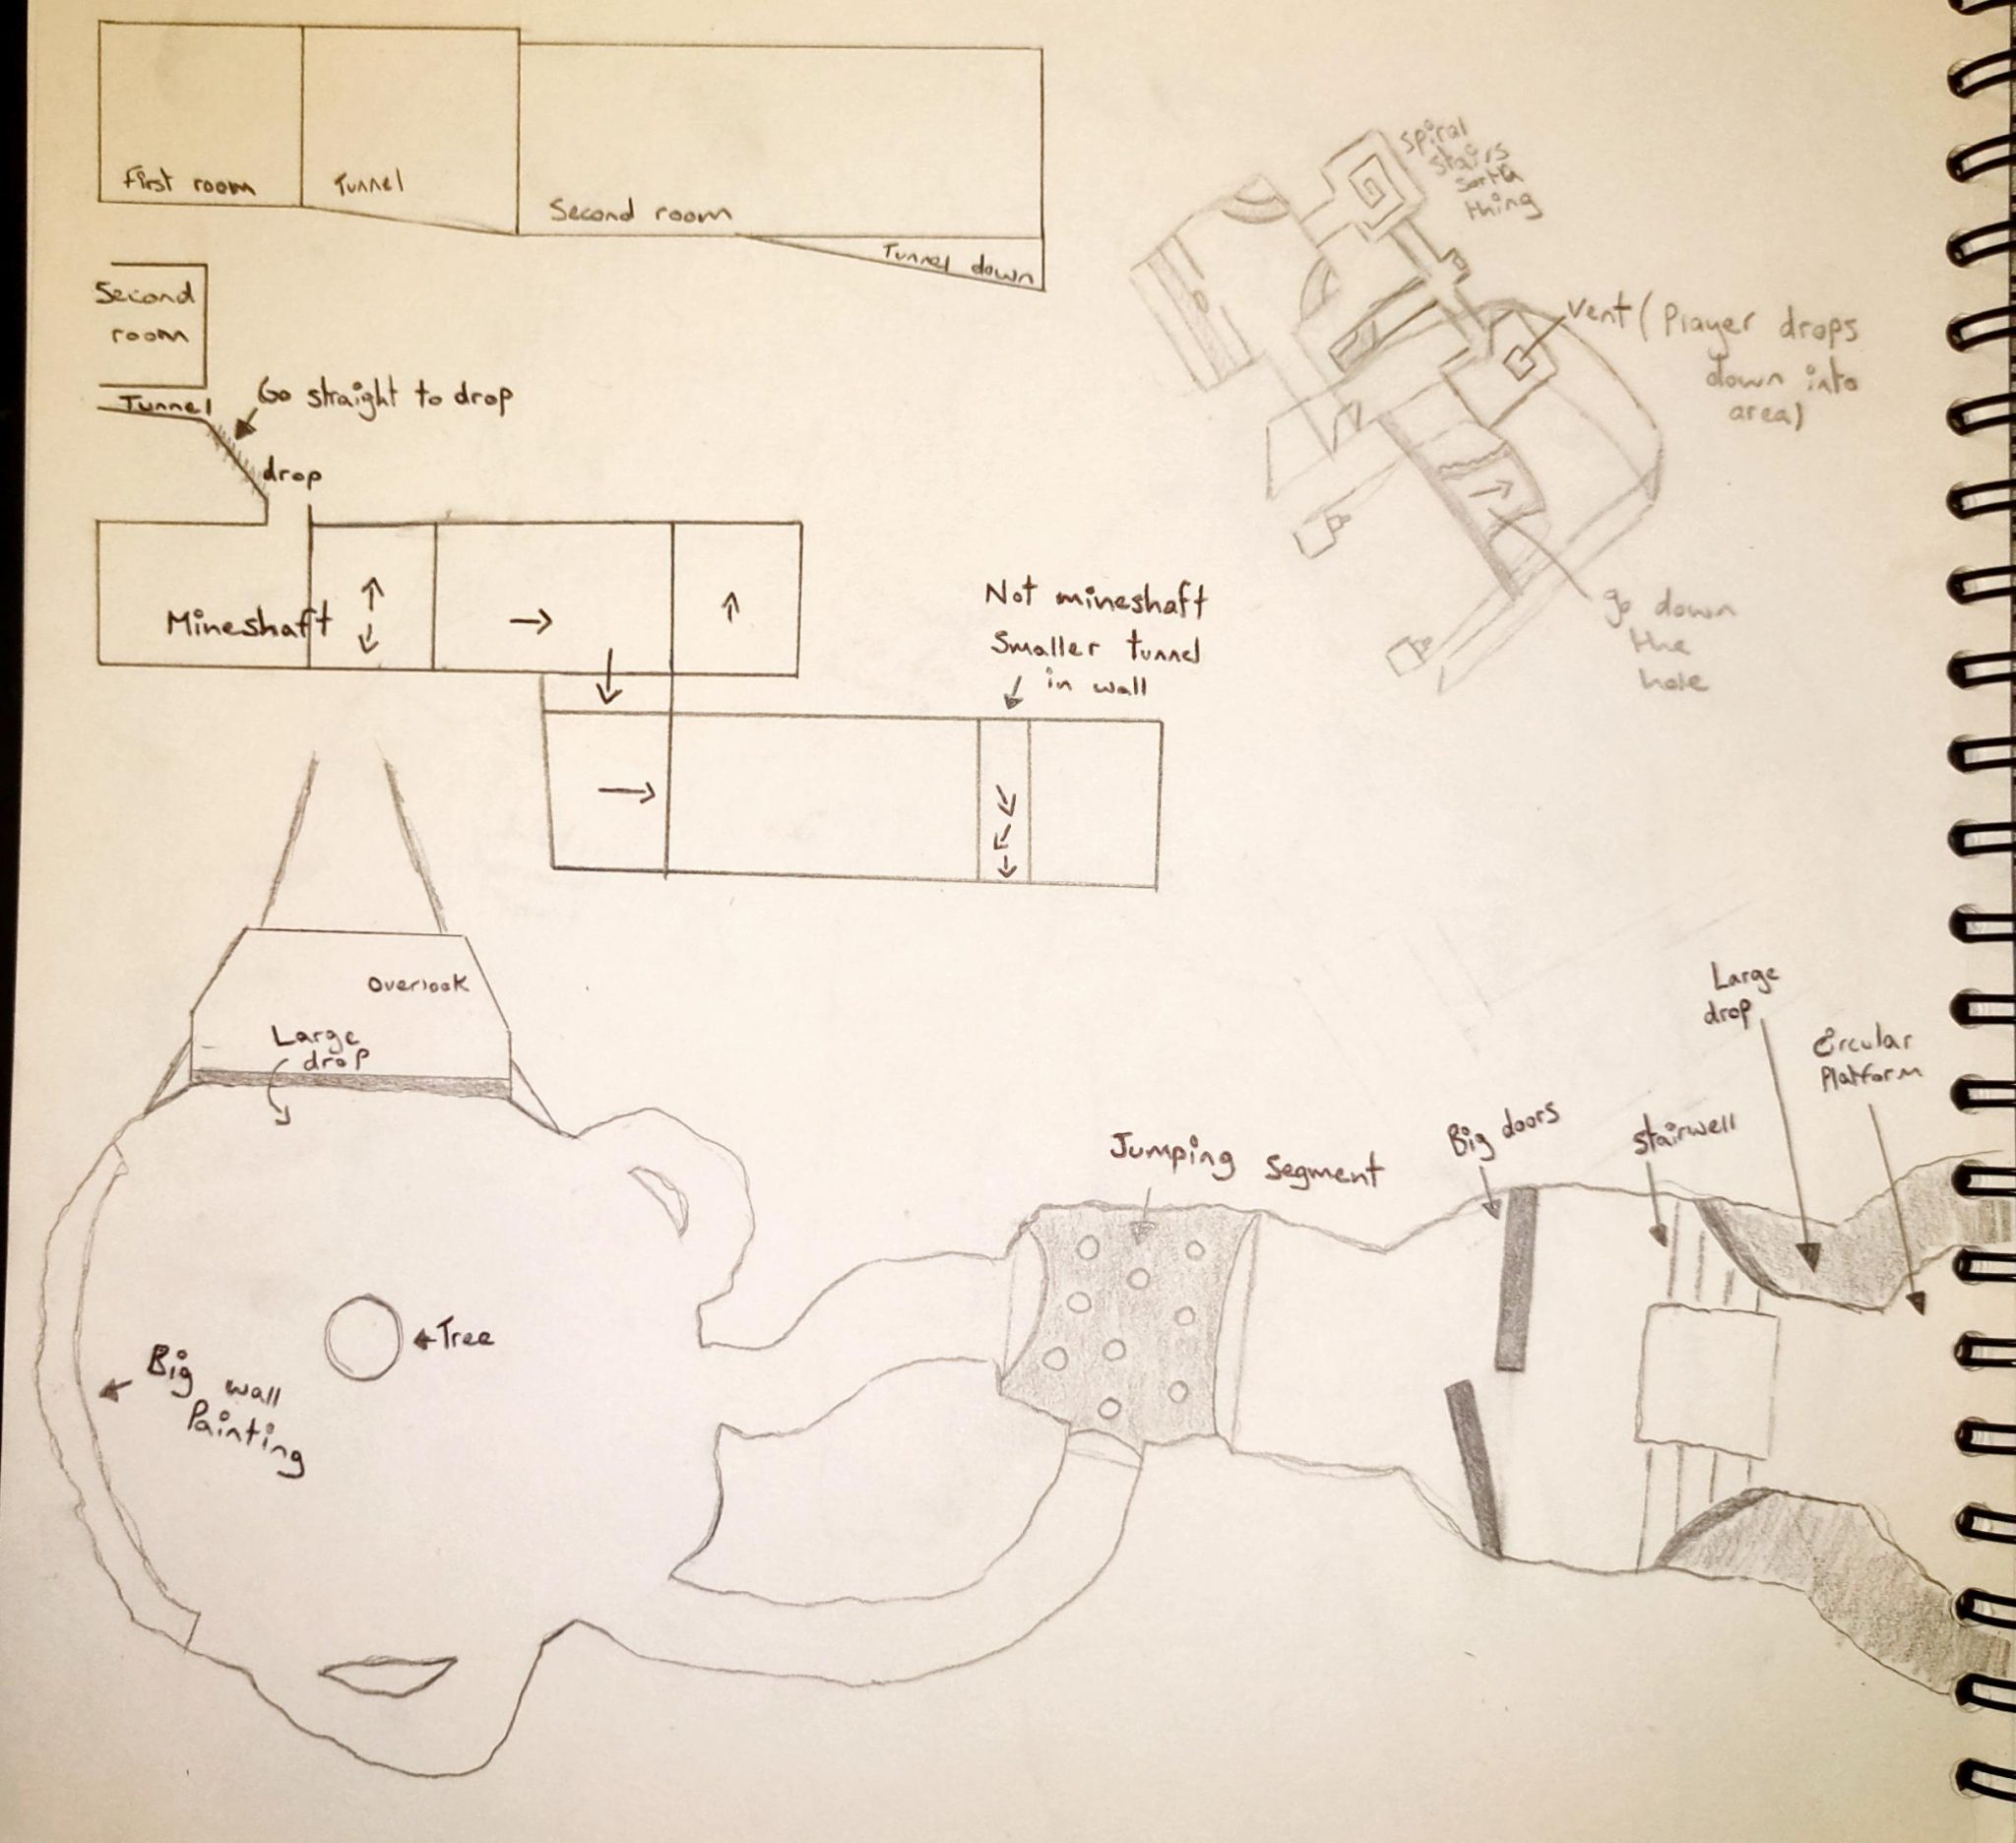 First room
Tunnel
Second room
Tunnel down
Spiral
stairs
sorta
thing
Second
room
Tunnel
Go straight to drop
drop
Vent (Player drops
down into
area)
Mineshaft
Not mineshaft
Smaller tunnel
in wall
go down
the
hole
Overlook
Large
drop
Large
drop
Circular
Platform
Big doors
Stairwell
Jumping Segment
Tree
Big wall
Painting